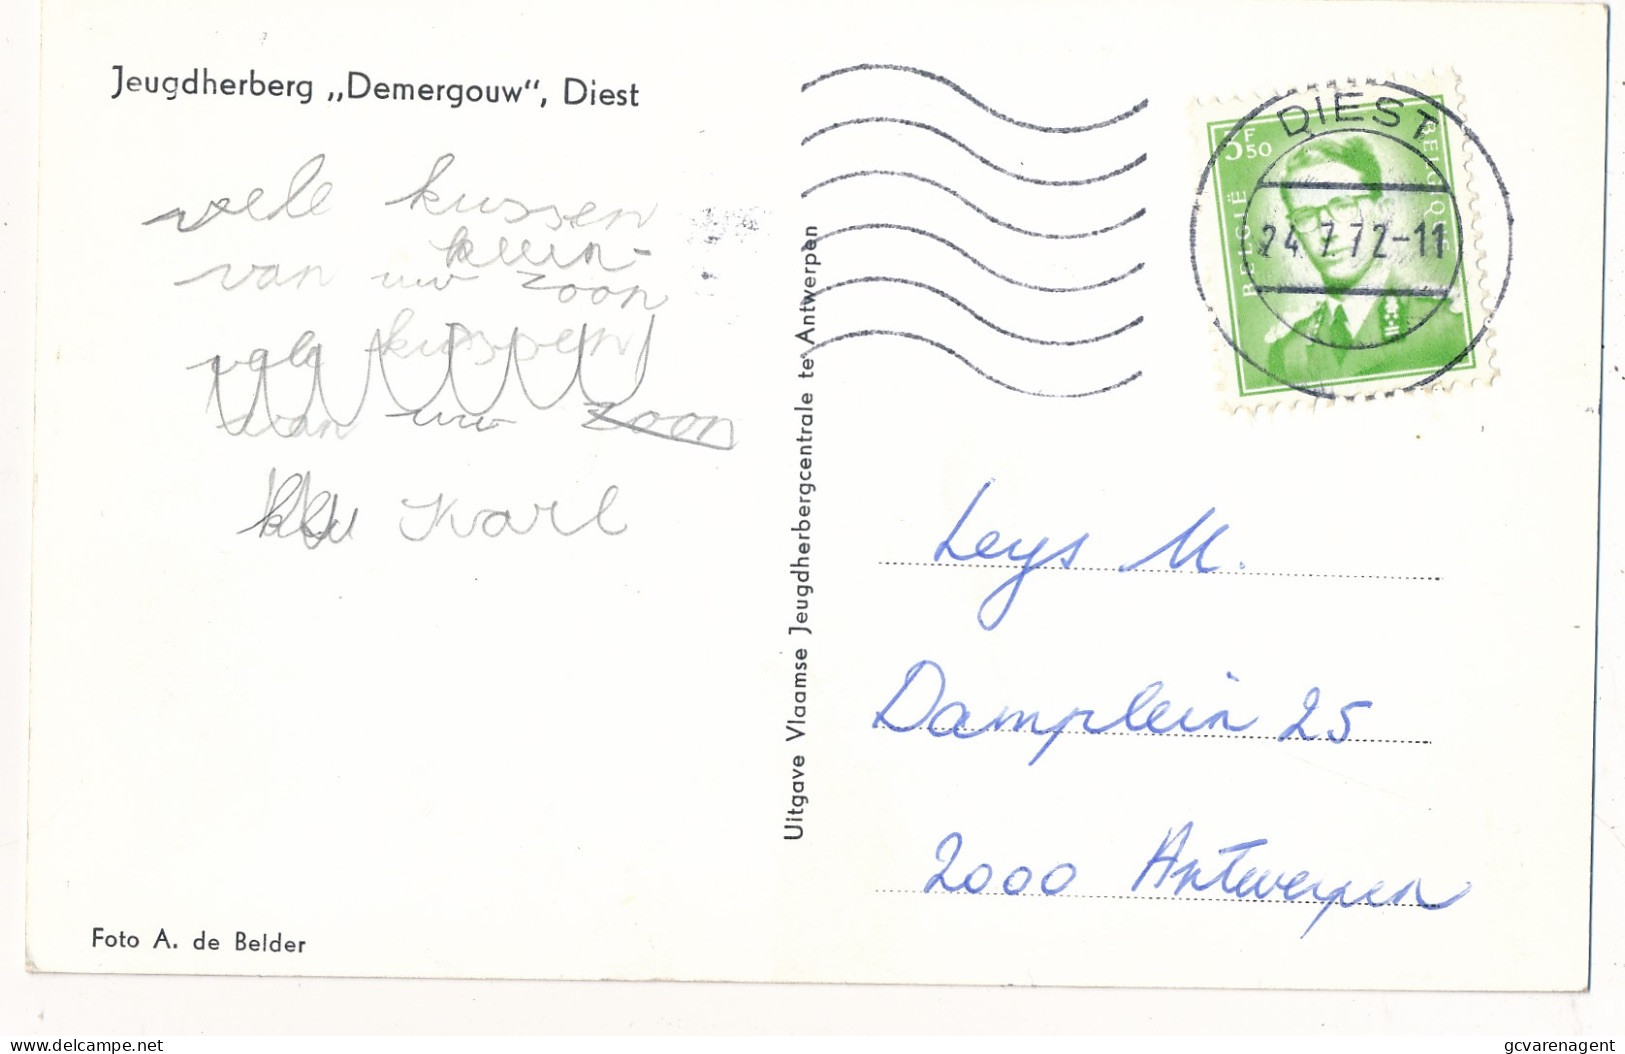 Jeugdherberg „Demergouw“, Diest
vele kussen
klein-
van uw zoon
vele kussen
van uw zoon
Karl
Foto A. de Belder
Uitgave Vlaamse Jeugdherbergcentrale te Antwerpen
DIEST
24.7.72-11
3F50
BELGIË
BELGIQUE
Leys M.
Damplein 25
2000 Antwerpen
delcampe.net
gcvarenagent